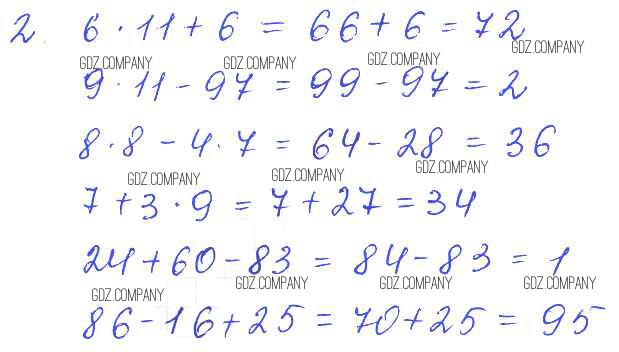 2. 6 · 11 + 6 = 66 + 6 = 72
GDZ.COMPANY
GDZ.COMPANY GDZ.COMPANY GDZ.COMPANY
9 · 11 - 97 = 99 - 97 = 2
8 · 8 - 4 · 7 = 64 - 28 = 36
GDZ.COMPANY GDZ.COMPANY GDZ.COMPANY
7 + 3 · 9 = 7 + 27 = 34
24 + 60 - 83 = 84 - 83 = 1
GDZ.COMPANY GDZ.COMPANY GDZ.COMPANY GDZ.COMPANY
86 - 16 + 25 = 70 + 25 = 95